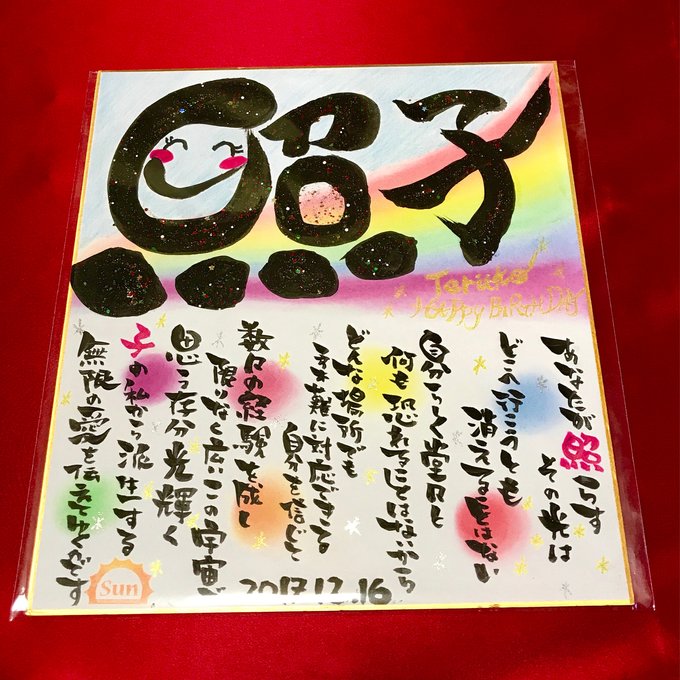 照子
Teruko
HAPPY BiRTHDAY
あなたが照らす
その光は
どこへ行こうとも
消える事はない
自分らしく堂々と
何も恐れることはないから
どんな場所でも
に対応できる
自分を信じて
数々の経験を成し
限りなく広いこの宇宙で
思う存分光輝く
子の私から派生する
無限の愛を伝えてゆくのです
2017.12.16
Sun